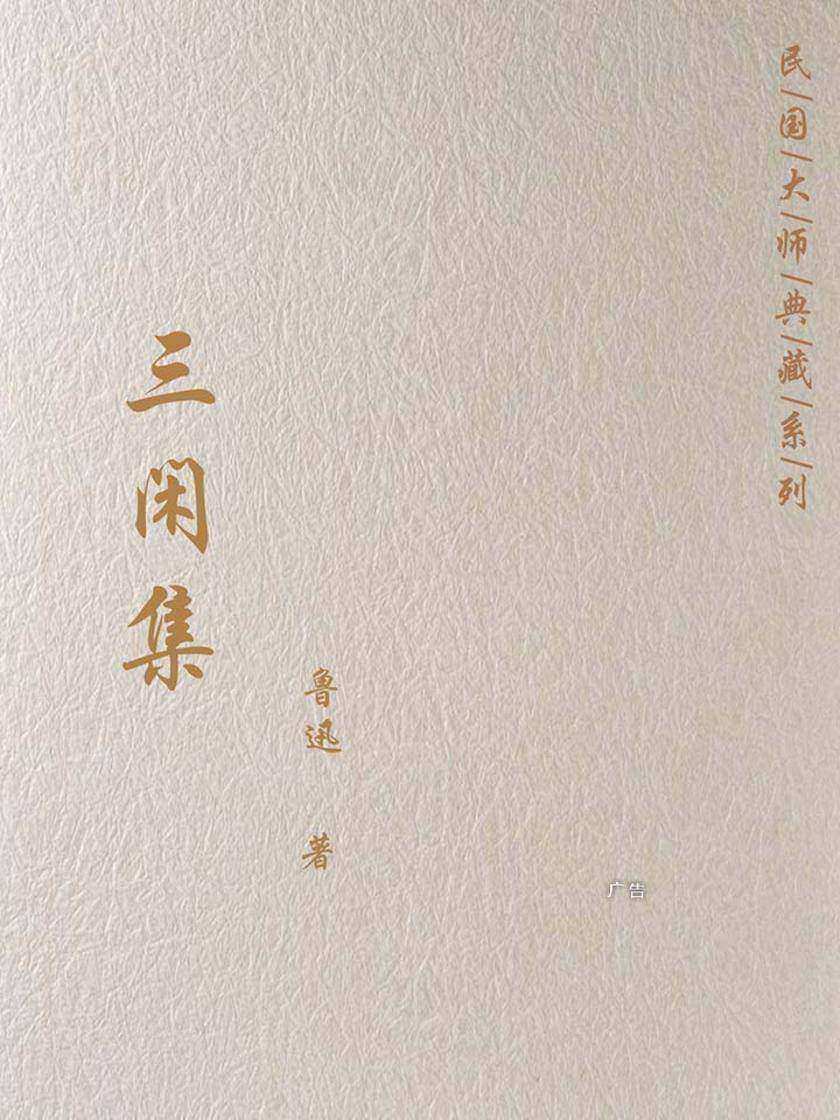 民/国/大/师/典/藏/系/列
三闲集
鲁迅 著
广告